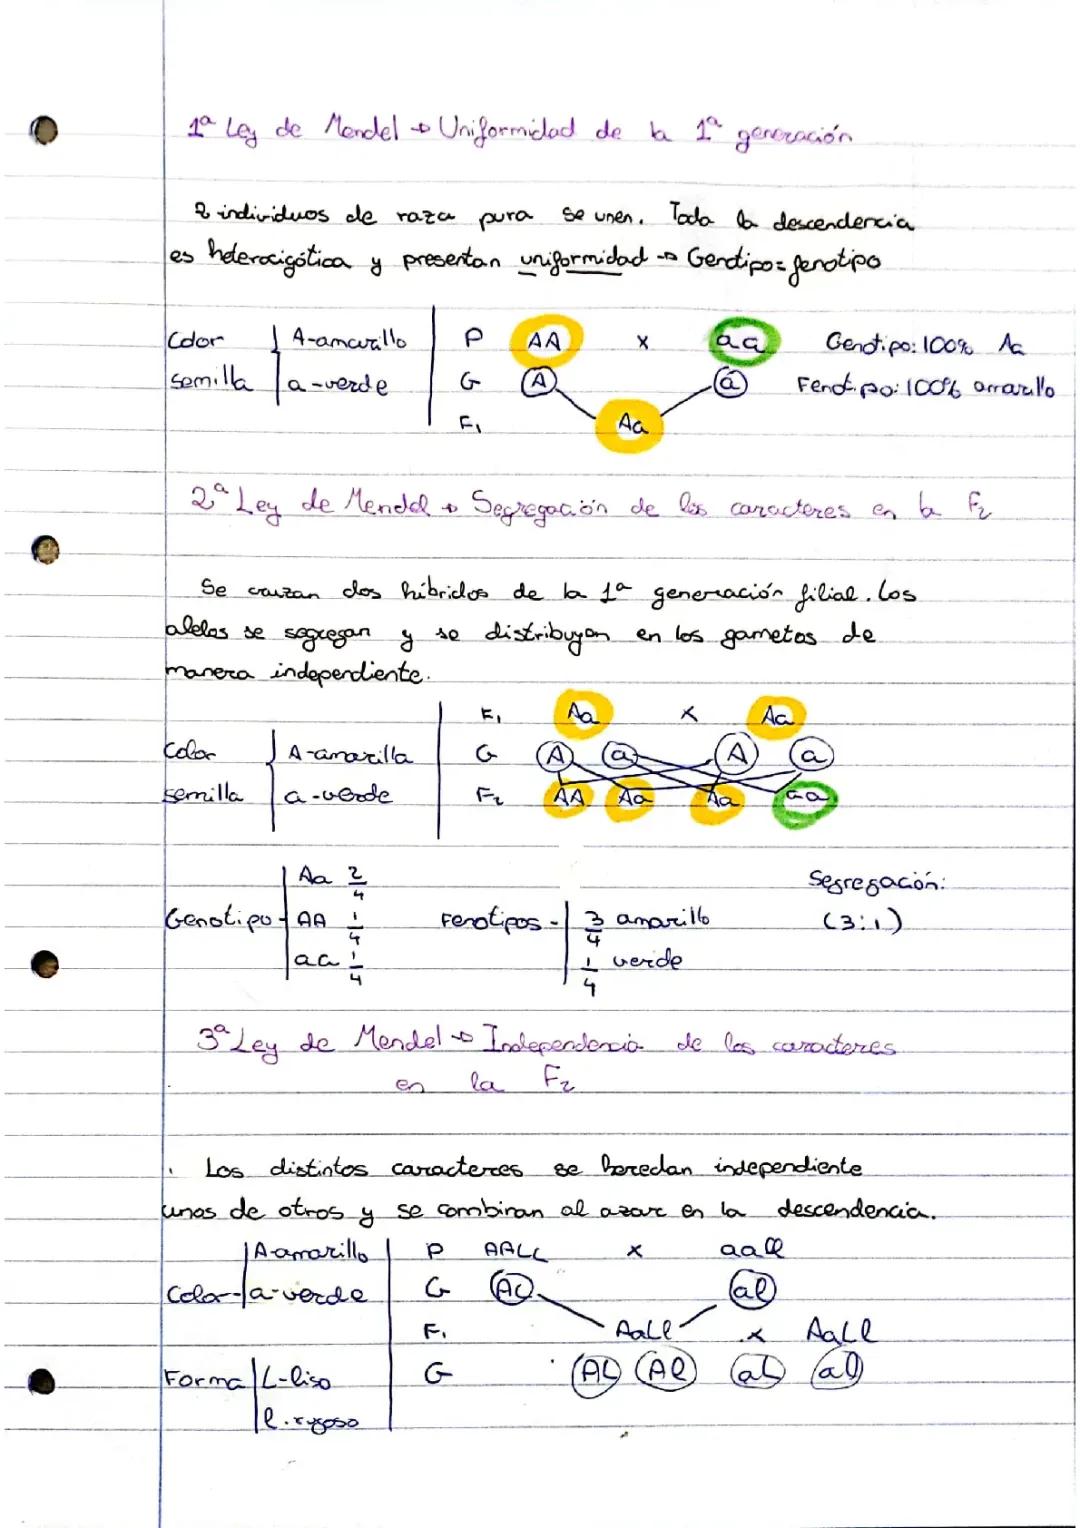 1ª Ley de Mendel → Uniformidad de la 1ª generación
2 individuos de raza pura se unen. Toda la descendencia
es heterocigótica y presentan uniformidad → Genotipo = fenotipo
Color semilla
A-amarillo
a-verde
P AA x aa
G A a
F₁ Aa
Genotipo: 100% Aa
Fenotipo: 100% amarillo
2ª Ley de Mendel → Segregación de los caracteres en la F₂
Se cruzan dos híbridos de la 1ª generación filial. Los
alelos se segregan y se distribuyen en los gametos de
manera independiente.
Color semilla
A-amarilla
a-verde
F₁ Aa x Aa
G A a A a
F₂ AA Aa Aa aa
Genotipo
Aa 2/4
AA 1/4
aa 1/4
Fenotipos -
3/4 amarillo
1/4 verde
Segregación:
(3:1)
3ª Ley de Mendel → Independencia de los caracteres
en la F₂
Los distintos caracteres se heredan independiente
unos de otros y se combinan al azar en la descendencia.
Color-
A-amarillo
a-verde
Forma
L-liso
l-rugoso
P AALL x aall
G AL al
F₁ AaLl x AaLl
G AL Al aL al